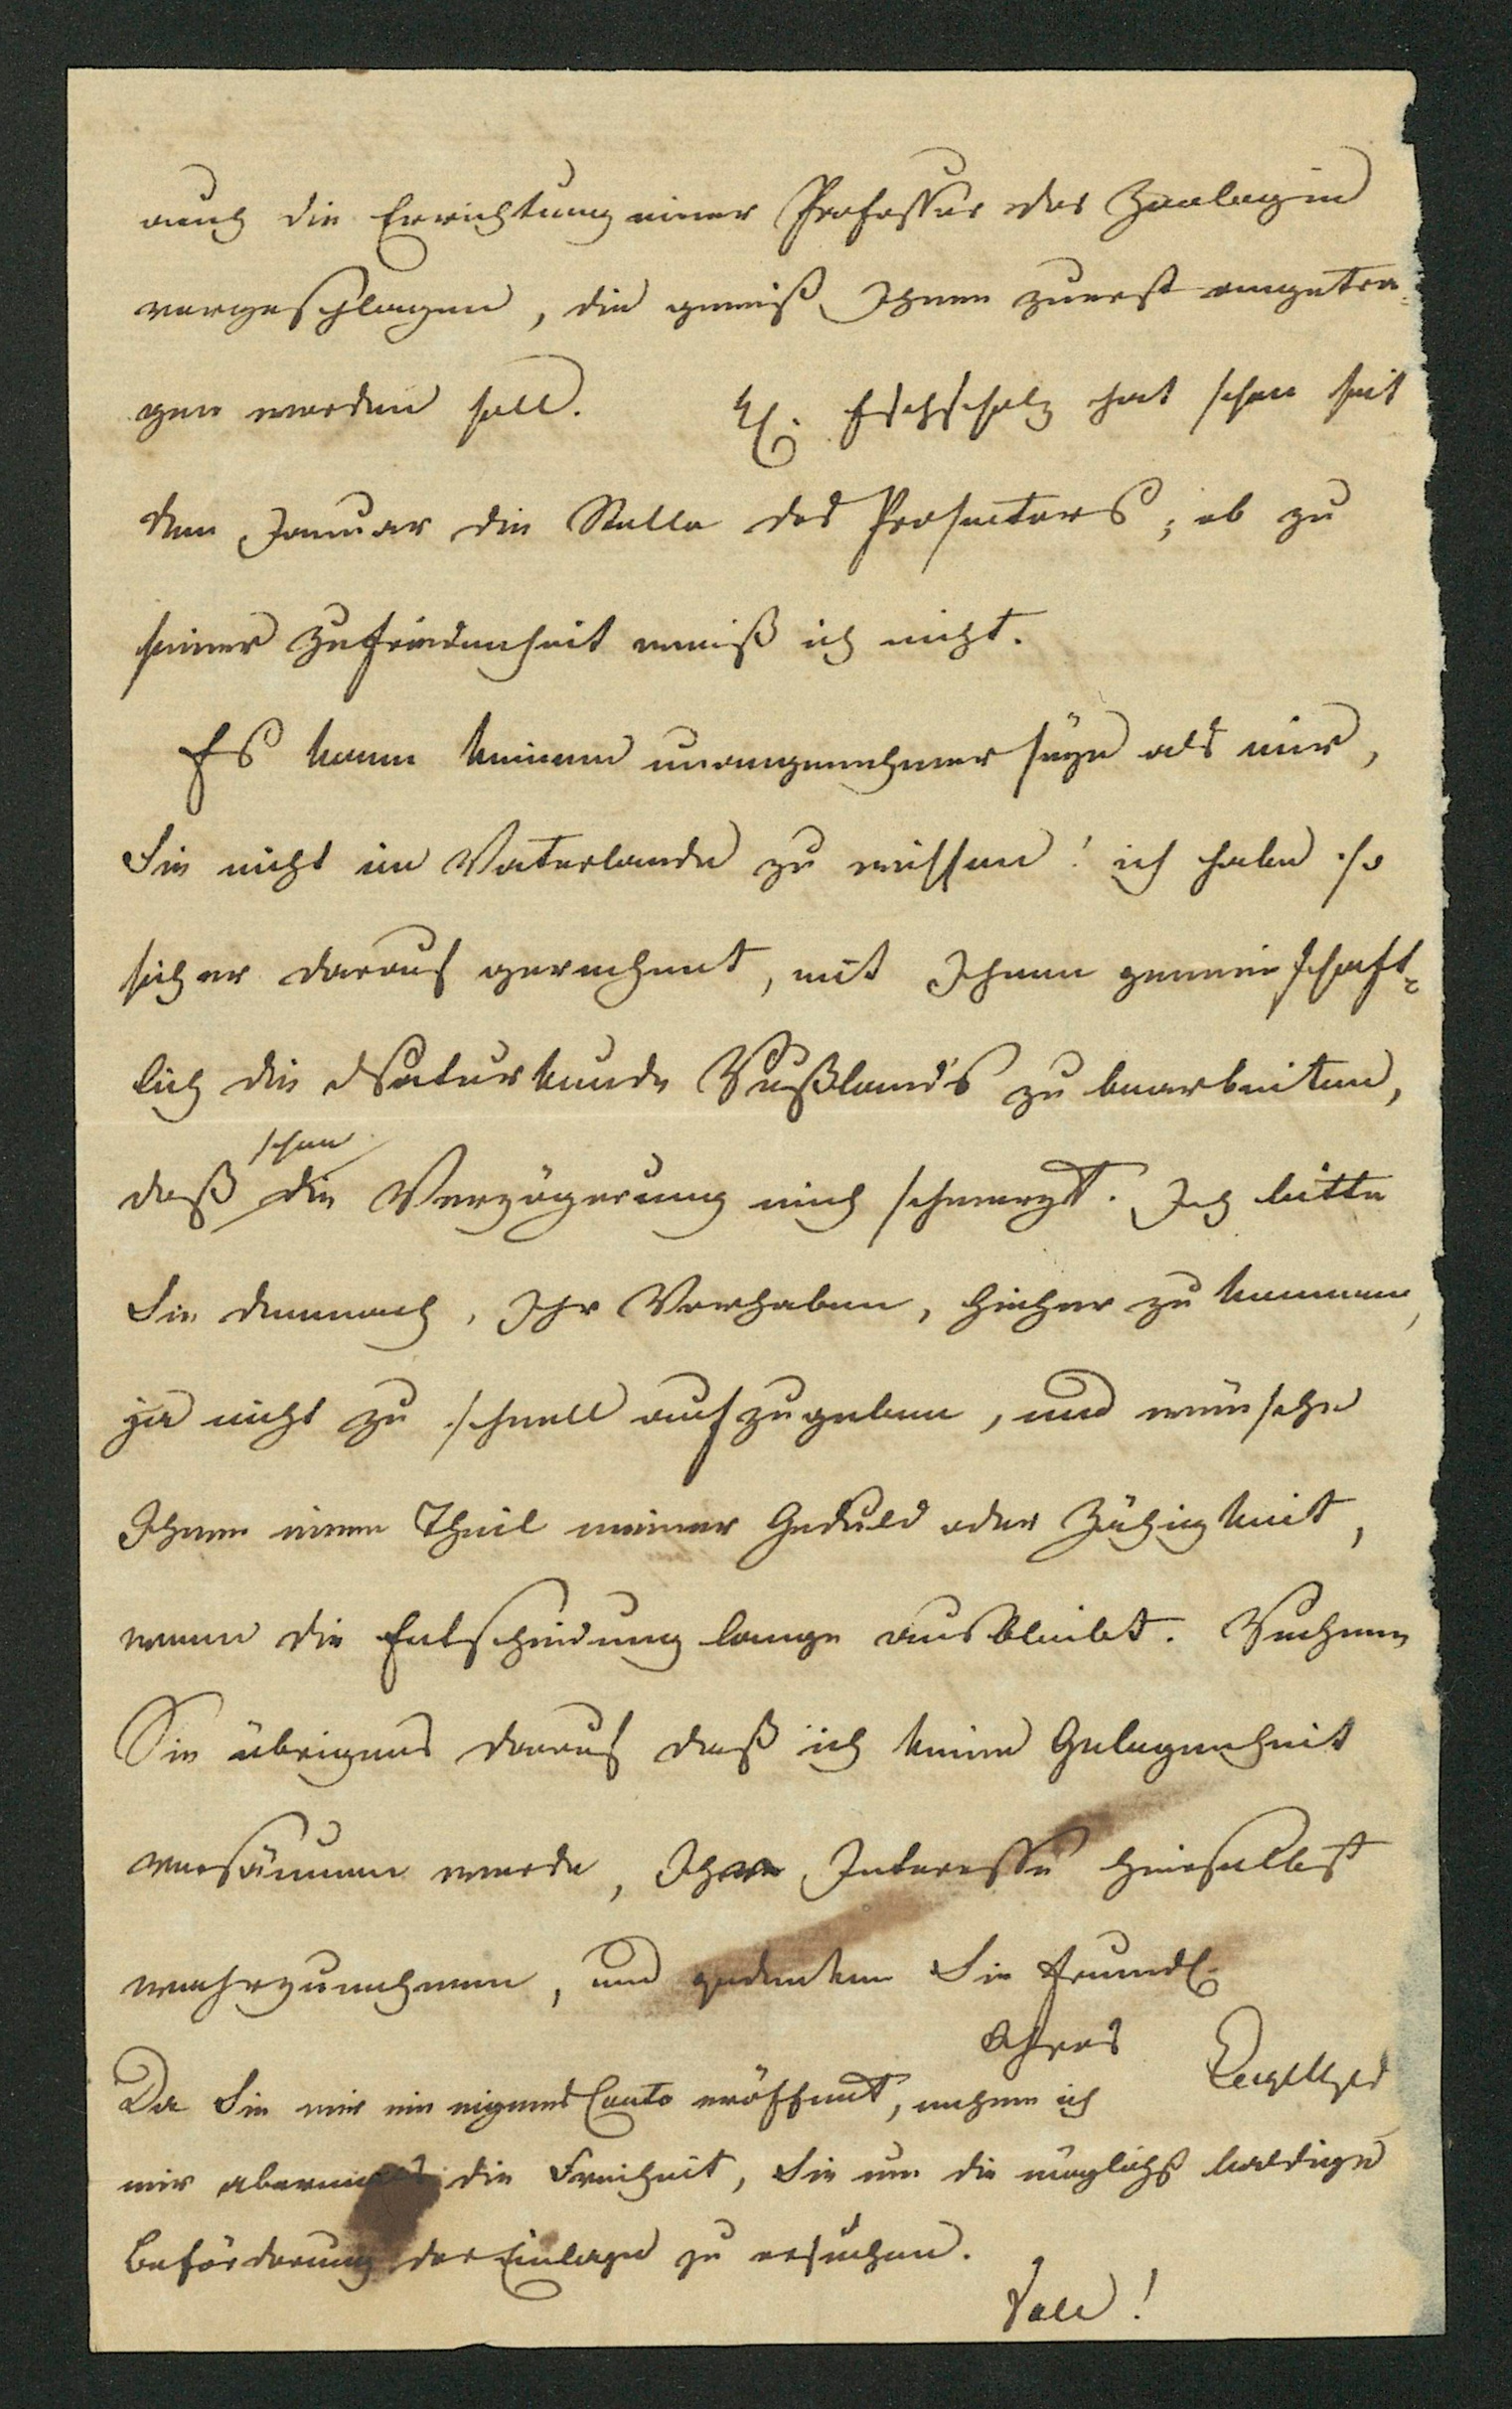 auch die Errichtung einer Professur der Zoologie
vorgeschlagen, die gewiß Ihnen zuerst angetra-
gen werden soll. H. Eschscholz hat schon seit
dem Januar die Stelle des Prosectors; ob zu
seiner Zufriedenheit weiß ich nicht.
Es kann keinem unangenehmer seyn als mir,
Sie nicht im Vaterlande zu wissen! ich habe so
sicher darauf gerechnet, mit Ihnen gemeinschaft-
lich die Naturkunde Rußland's zu bearbeiten,
schon
daß die Verzögerung mich schmerzt. Ich bitte
Sie demnach, Ihr Vorhaben, hieher zu kommen,
ja nicht zu schnell aufzugeben, und wünsche
Ihnen einen Theil meiner Geduld oder Zähigkeit,
wenn die Entscheidung lange ausbleibt. Rechnen
Sie übrigens darauf daß ich keine Gelegenheit
versäumen werde, Ihr Interesse hieselbst
wahrzunehmen, und gedenken Sie freundl.
Ihres
Da Sie mir ein eignes Conto eröffnet, nehme ich
mir abermals die Freiheit, Sie um die möglichst baldige
Beförderung der Einlage zu ersuchen.
Vale!